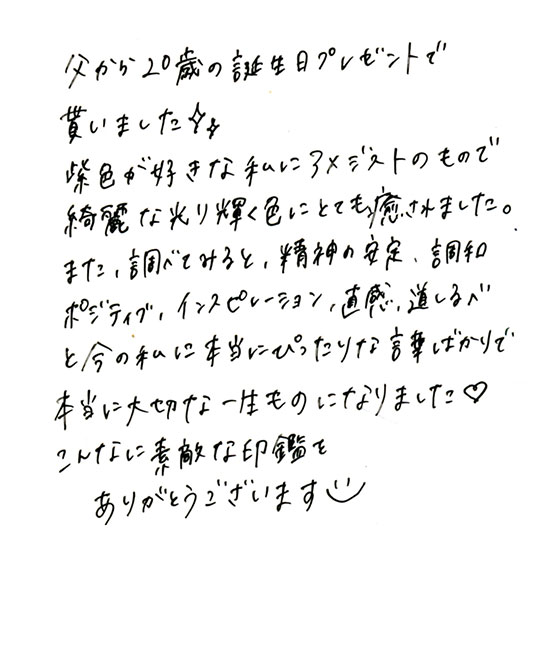 父から20歳の誕生日プレゼントで
貰いました✨
紫色が好きな私にアメジストのもので
綺麗な光り輝く色にとても癒されました。
また、調べてみると、精神の安定、調和
ポジティブ、インスピレーション、直感、道しるべ
と今の私に本当にぴったりな言葉ばかりで
本当に大切な一生ものになりました♡
こんなに素敵な印鑑を
ありがとうございます☺